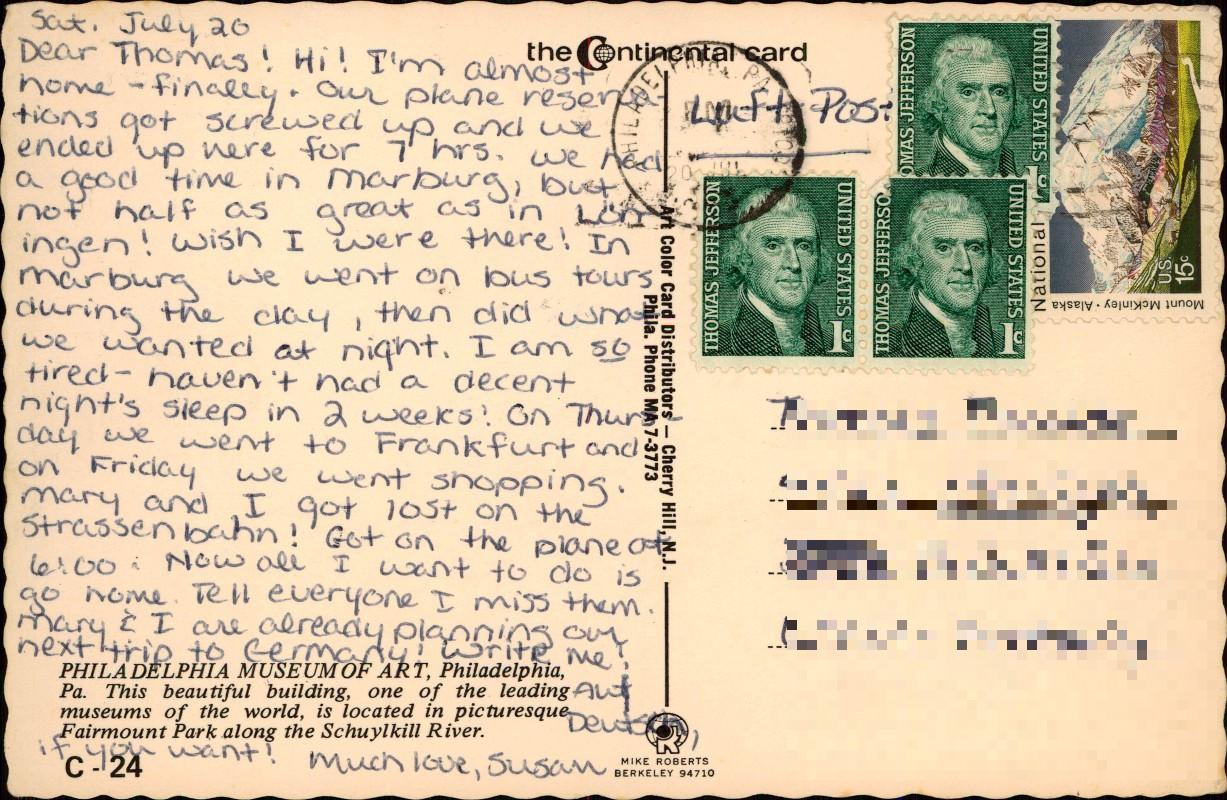 Sat. July 20
Dear Thomas! Hi! I'm almost
home - finally. Our plane reserva-
tions got screwed up and we
ended up here for 7 hrs. We had
a good time in Marburg, but
not half as great as in Lön-
ingen! Wish I were there! In
Marburg we went on bus tours
during the day, then did what
we wanted at night. I am so
tired - haven't had a decent
night's sleep in 2 weeks! On Thurs-
day we went to Frankfurt and
on Friday we went shopping.
Mary and I got lost on the
Strassenbahn! Got on the plane at
6:00. Now all I want to do is
go home. Tell everyone I miss them.
Mary & I are already planning our
next trip to Germany! Write me!
Auf
Deutsch,
if you want! Much love, Susan
PHILADELPHIA MUSEUM OF ART, Philadelphia,
Pa. This beautiful building, one of the leading
museums of the world, is located in picturesque
Fairmount Park along the Schuylkill River.
C - 24
the Continental card
Luft Post
Art Color Card Distributors — Cherry Hill, N.J.
Phila. Phone MA 7-3773
MIKE ROBERTS
BERKELEY 94710
PHILADELPHIA, PA
THOMAS JEFFERSON
UNITED STATES
1c
THOMAS JEFFERSON
UNITED STATES
1c
THOMAS JEFFERSON
UNITED STATES
1c
National
U.S.
15c
Mount McKinley · Alaska